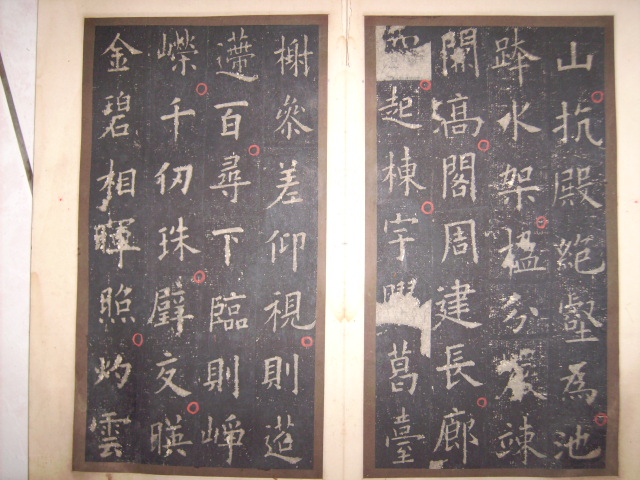 山抗殿絕壑為池
跨水架楹分巖竦
闕高閣周建長廊
起棟宇葛臺
榭參差仰視則迢
遰百尋下臨則崢
嶸千仞珠璧交暎
金碧相暉照灼雲